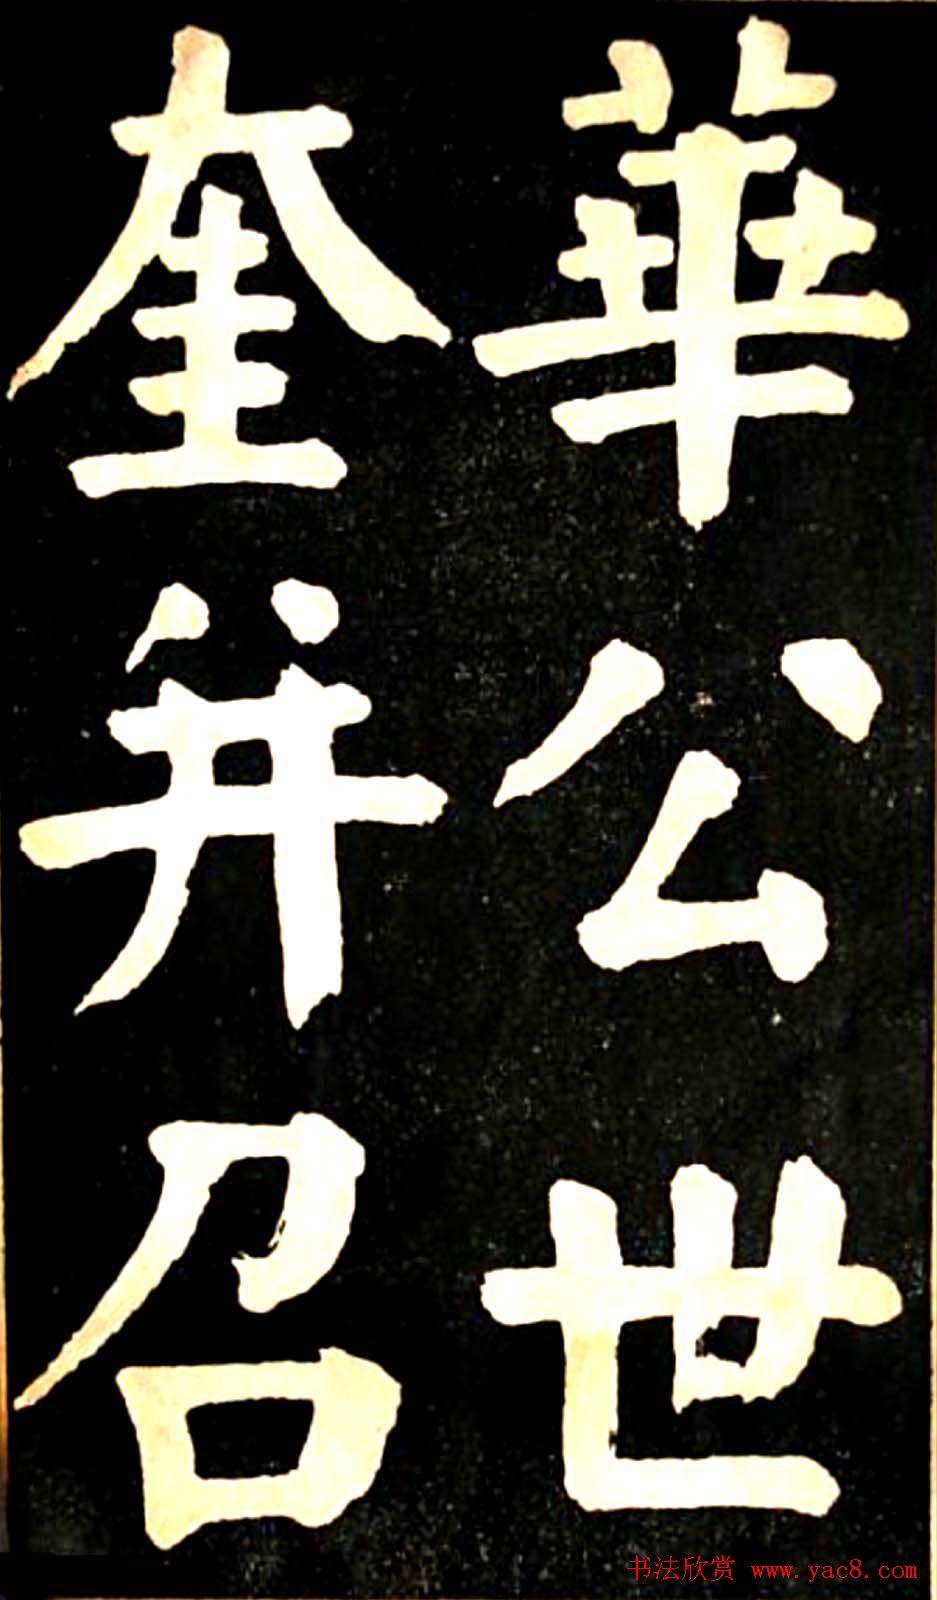 華公世
奎并召
书法欣赏 www.yac8.com